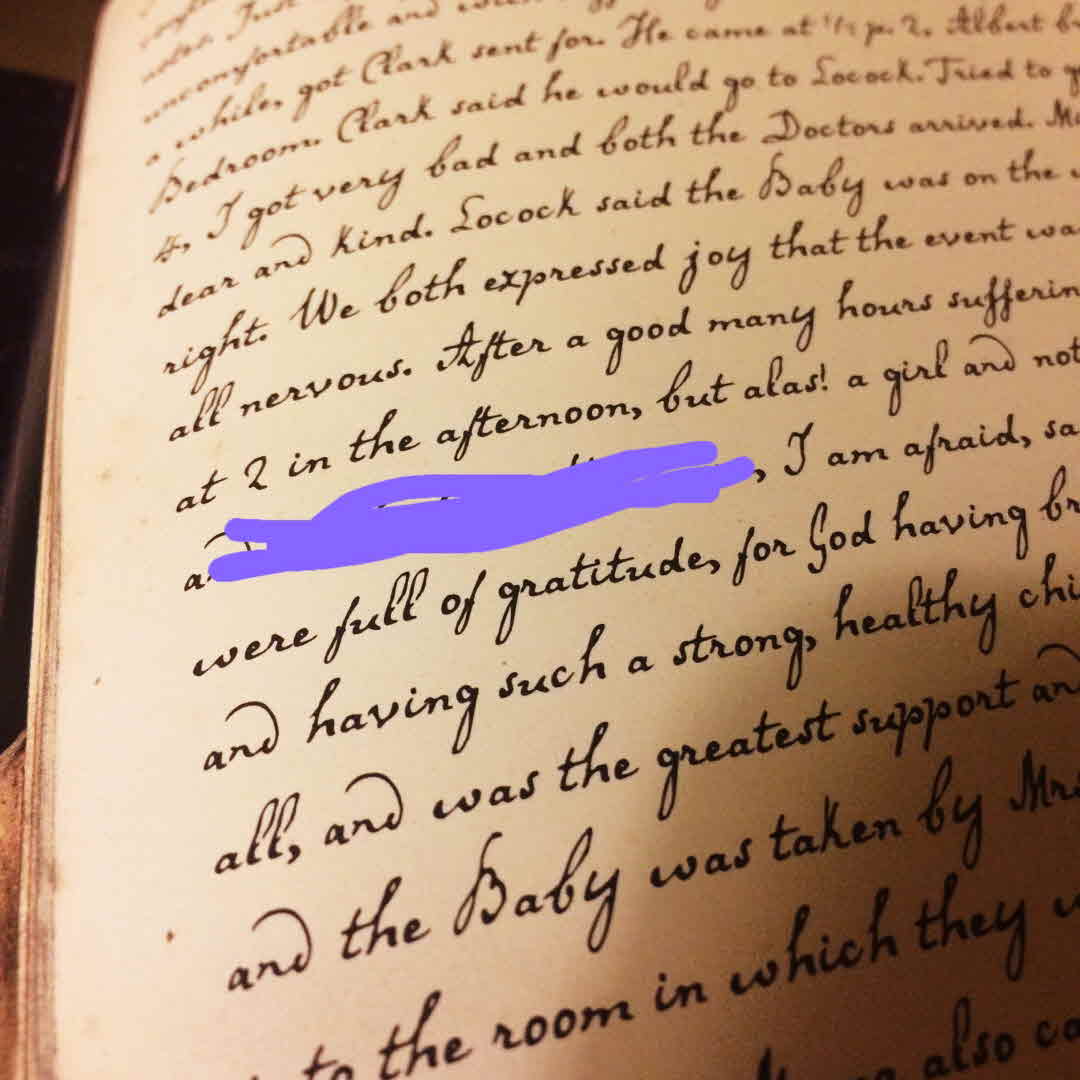 uncomfortable and
a while, got Clark sent for. He came at ½ p. 2. Albert
Bedroom. Clark said he would go to Locock. Tried to
4, I got very bad and both the Doctors arrived.
dear and kind. Locock said the Baby was on the
right. We both expressed joy that the event
all nervous. After a good many hours
at 2 in the afternoon, but alas! a girl and not
, I am afraid,
were full of gratitude, for God having
and having such a strong, healthy
all, and was the greatest support
and the Baby was taken by
to the room in which they
also